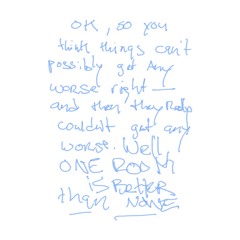 OK, so you
think things can't
possibly get any
worse right —
and then they
couldn't get any
worse. Well,
ONE
IS BETTER
than NONE